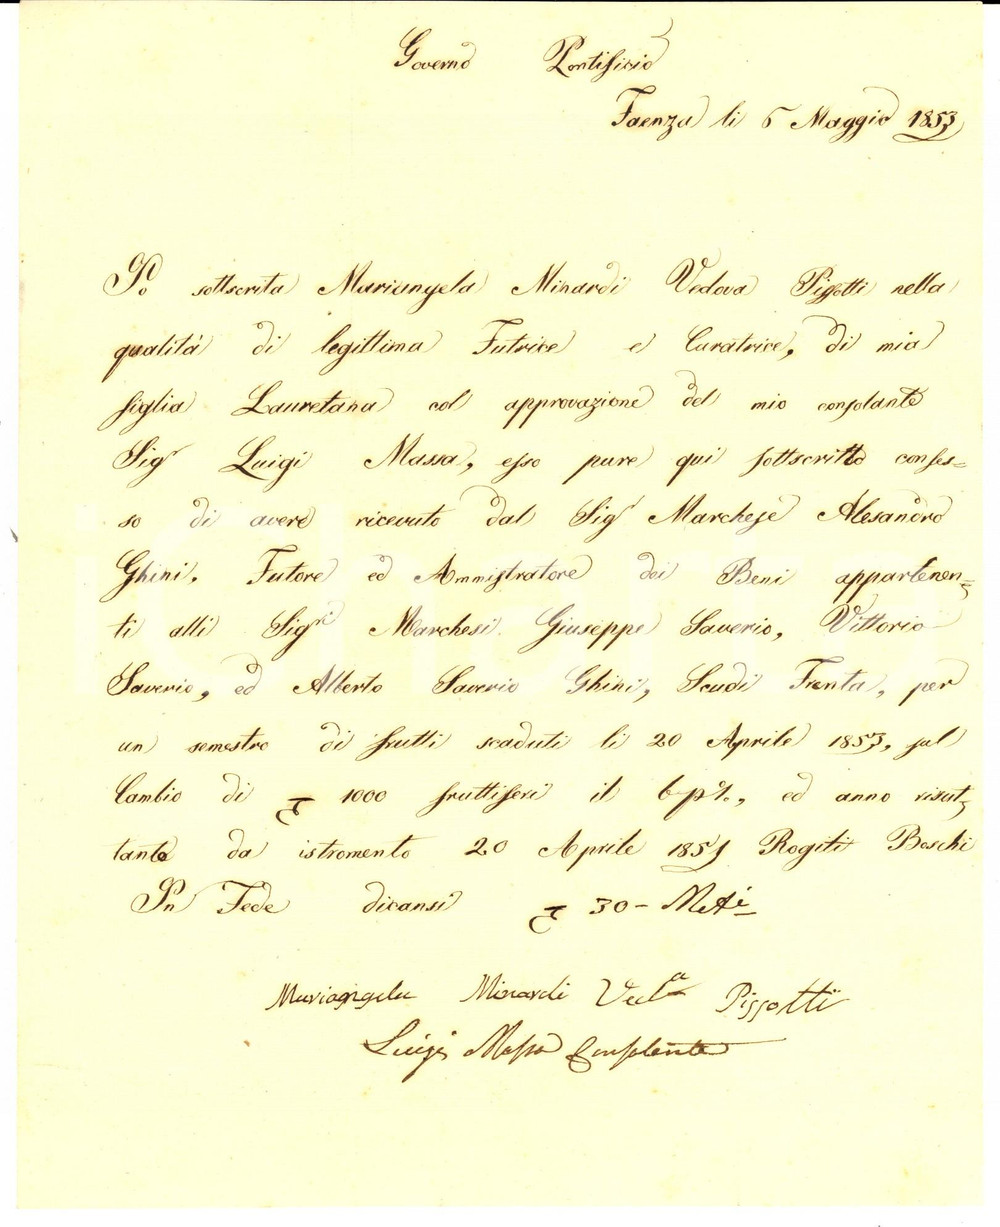 Governo Pontificio
Faenza li 6 Maggio 1853
Io sottscrita Mariangela Minardi Vedova Pissotti nella
qualità di legittima Tutrice e Curatrice, di mia
figlia Lauretana col approvazione del mio consolante
Sigr Luigi Massa, esso pure qui sottscritto confes=
so di avere ricevuto dal Sigr Marchese Alesandro
Ghini. Tutore ed Amministratore dei Beni appartenen=
ti alli Sigri Marchesi Giuseppe Saverio, Vittorio
Saverio, ed Alberto Saverio Ghini, Scudi Trenta, per
un semestre di frutti scaduti li 20 Aprile 1853, sul
Cambio di 1000 fruttiferi il 6 p%, ed anno risul=
tante da istromento 20 Aprile 1851 Rogiti Boschi
In Fede dicansi 30 -
Mariangela Minardi Veda Pissotti
Luigi Massa Consolente